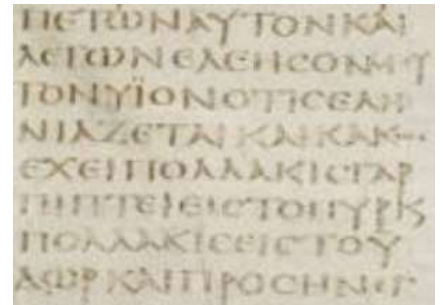 ΠΕΤΩΝΑΥΤΟΝΚΑΙ
ΛΕΓΩΝΕΛΕΗCΟΝΜΟΥ
ΤΟΝΥΪΟΝΟΤΙCΕΛΗ
ΝΙΑΖΕΤΑΙΚΑΙΚΑΚΩC
ΕΧΕΙΠΟΛΛΑΚΙCΓΑΡ
ΠΙΠΤΕΙΕΙCΤΟΠΥΡΚ
ΠΟΛΛΑΚΙCΕΙCΤΟΥ
ΔΩΡΚΑΙΠΡΟCΗΝΕΓ